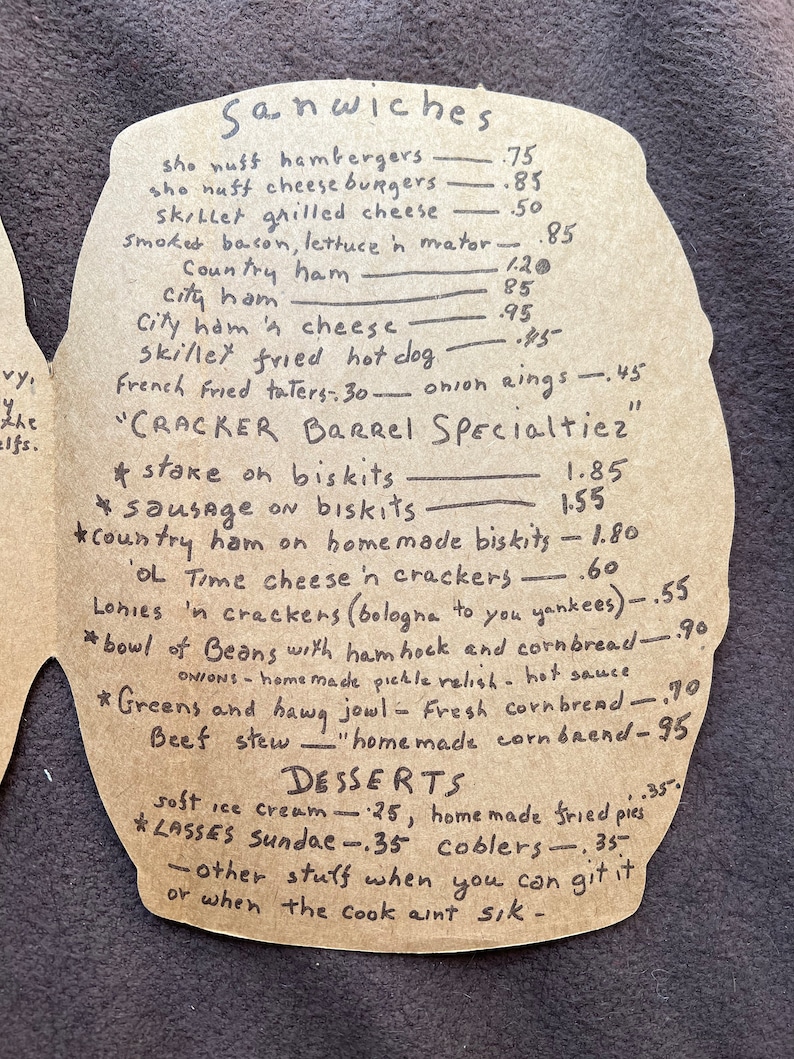 Sanwiches
sho nuff hambergers — .75
sho nuff cheeseburgers — .85
skillet grilled cheese — .50
smoked bacon, lettuce 'n mator — .85
Country ham — 1.20
city ham — 85
city ham 'n cheese — .95
skillet fried hot dog — .45
French Fried taters-.30 — onion rings — .45
"CRACKER BarrEl SPEcialtiez"
* stake on biskits — 1.85
* sausage on biskits — 1.55
* country ham on homemade biskits — 1.80
'oL Time cheese 'n crackers — .60
Lonies 'n crackers (bologna to you yankees) — .55
* bowl of Beans with ham hock and cornbread — .90
onions - homemade pickle relish - hot sauce
* Greens and hawg jowl - Fresh cornbread — .70
Beef stew — "homemade cornbread - 95
DESSERTS
soft ice cream — .25, homemade fried pies .35
* LASSES Sundae — .35 coblers — .35
— other stuff when you can git it
or when the cook aint sik -
vy,
y
the
elfs.